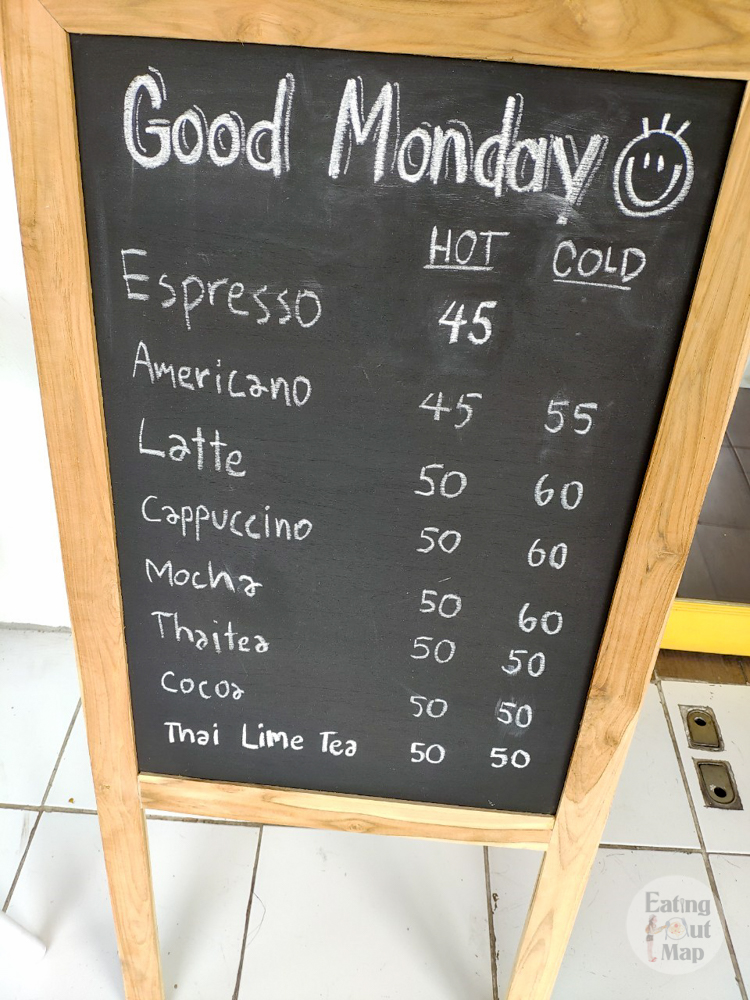 Good Monday
HOT COLD
Espresso 45
Americano 45 55
Latte 50 60
Cappuccino 50 60
Mocha 50 60
Thaitea 50 50
Cocoa 50 50
Thai Lime Tea 50 50
Eating
Out
Map